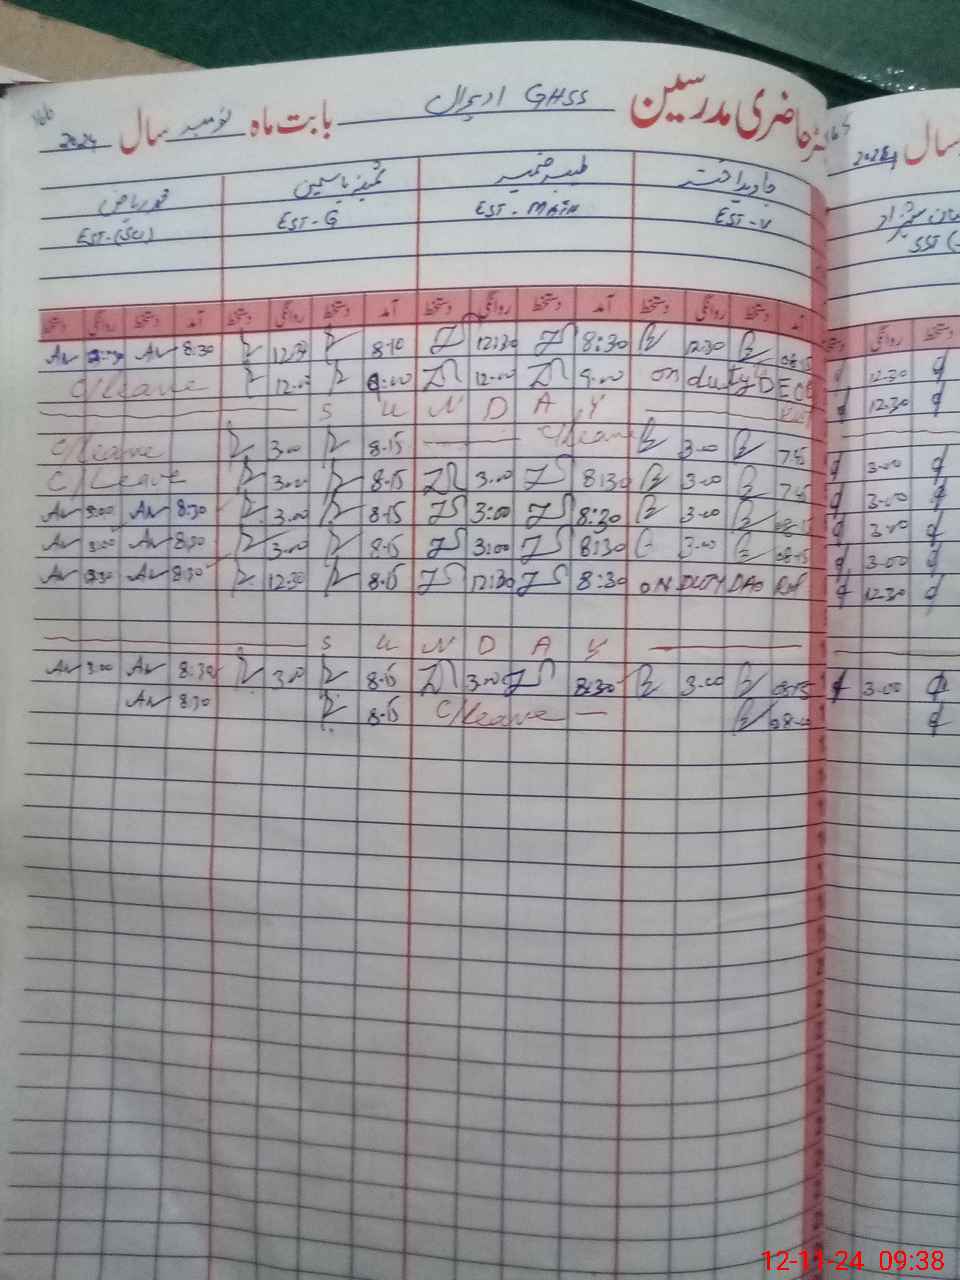 رجسٹر حاضری مدرسین GHSS ادہوال بابت ماہ نومبر سال 2024
سال 2024
جاوید اختر طیبہ ضمیر ثمینہ یاسمین محمد ریاض
EST-V EST-MATH EST-G EST-(SU)
SST
آمد دستخط روانگی دستخط آمد دستخط روانگی دستخط آمد دستخط روانگی دستخط آمد دستخط روانگی دستخط
روانگی دستخط
8:30 8-10 12:30 8:30 12:30 08-15
12.30
C/Leave 12.00 9:00 12.00 9.00 on duty D E O
12.30
S U N D A Y
C/Leave 3.00 8-15 C/Leave 3.00 7-45
3.00
C/Leave 3.00 8-15 3.00 8:30 3.00 7-45
3.00
3:00 8:30 3.00 8-15 3:00 8:30 3.00 08-15
3.00
3:00 8:30 3.00 8-15 3:00 8:30 3.00 08-15
3.00
8:30 12:30 8-15 12:30 8:30 ON DUTY DAO
12.30
S U N D A Y
3.00 8:30 3.00 8-15 3.00 8:30 3.00 08-15
3.00
8:30 8-15 C/Leave
12-11-24 09:38